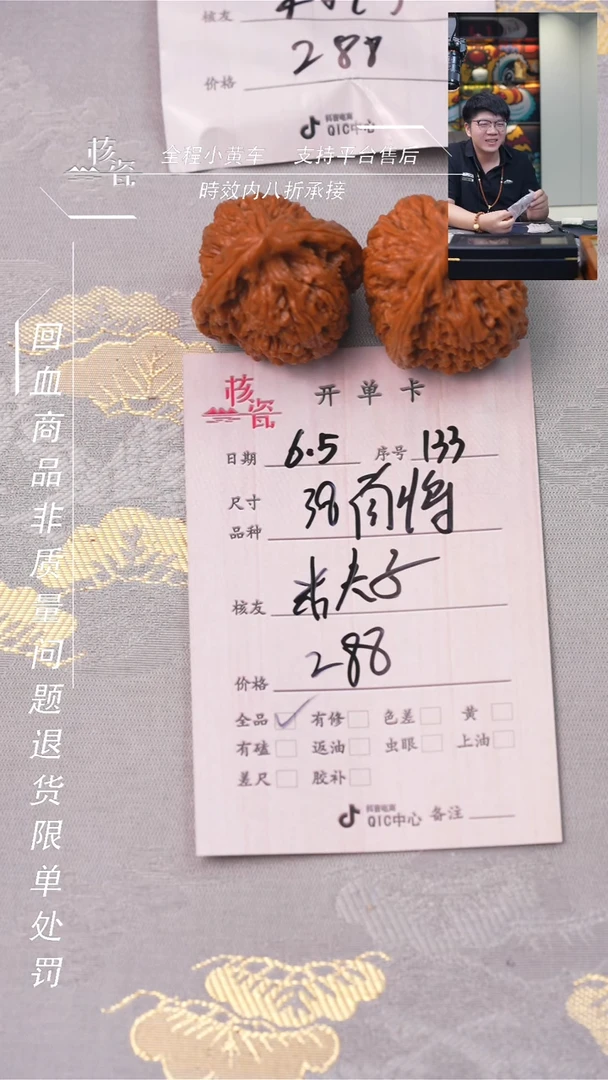 核友
价格 288
抖音电商
QIC中心
核瓷
全程小黄车 支持平台售后
時效内八折承接
回血商品非质量问题退货限单处罚
核瓷 开单卡
日期 6.5 序号 133
尺寸
品种 38 南将
核友 米夫子
价格 288
全品 有修 色差 黄
有磕 返油 虫眼 上油
差尺 胶补
抖音电商
QIC中心 备注